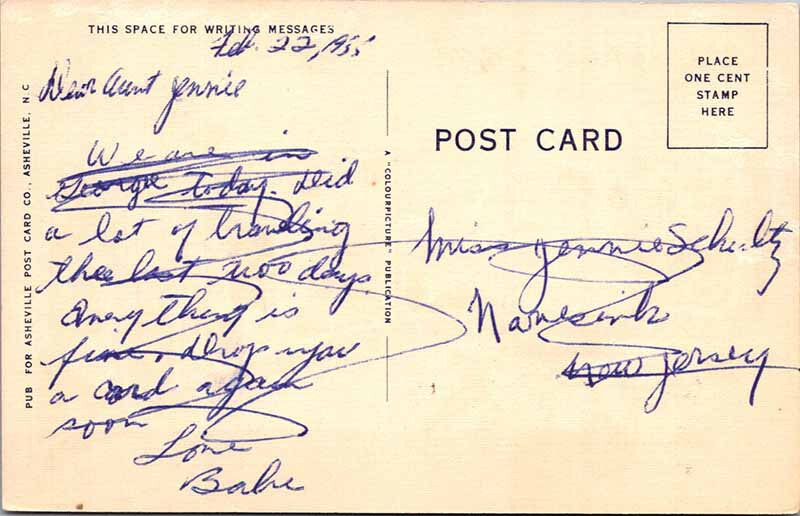 THIS SPACE FOR WRITING MESSAGES
Feb. 22, 1955
Dear Aunt Jennie
We are in
Georgie today. Did
a lot of traveling
the last twoo days
Everything is
fine, drop you
a card again
soon
Love
Babe
PUB FOR ASHEVILLE POST CARD CO., ASHEVILLE, N.C
A "COLOURPICTURE" PUBLICATION
POST CARD
PLACE
ONE CENT
STAMP
HERE
Miss Jennie Schultz
Navesink
New Jersey